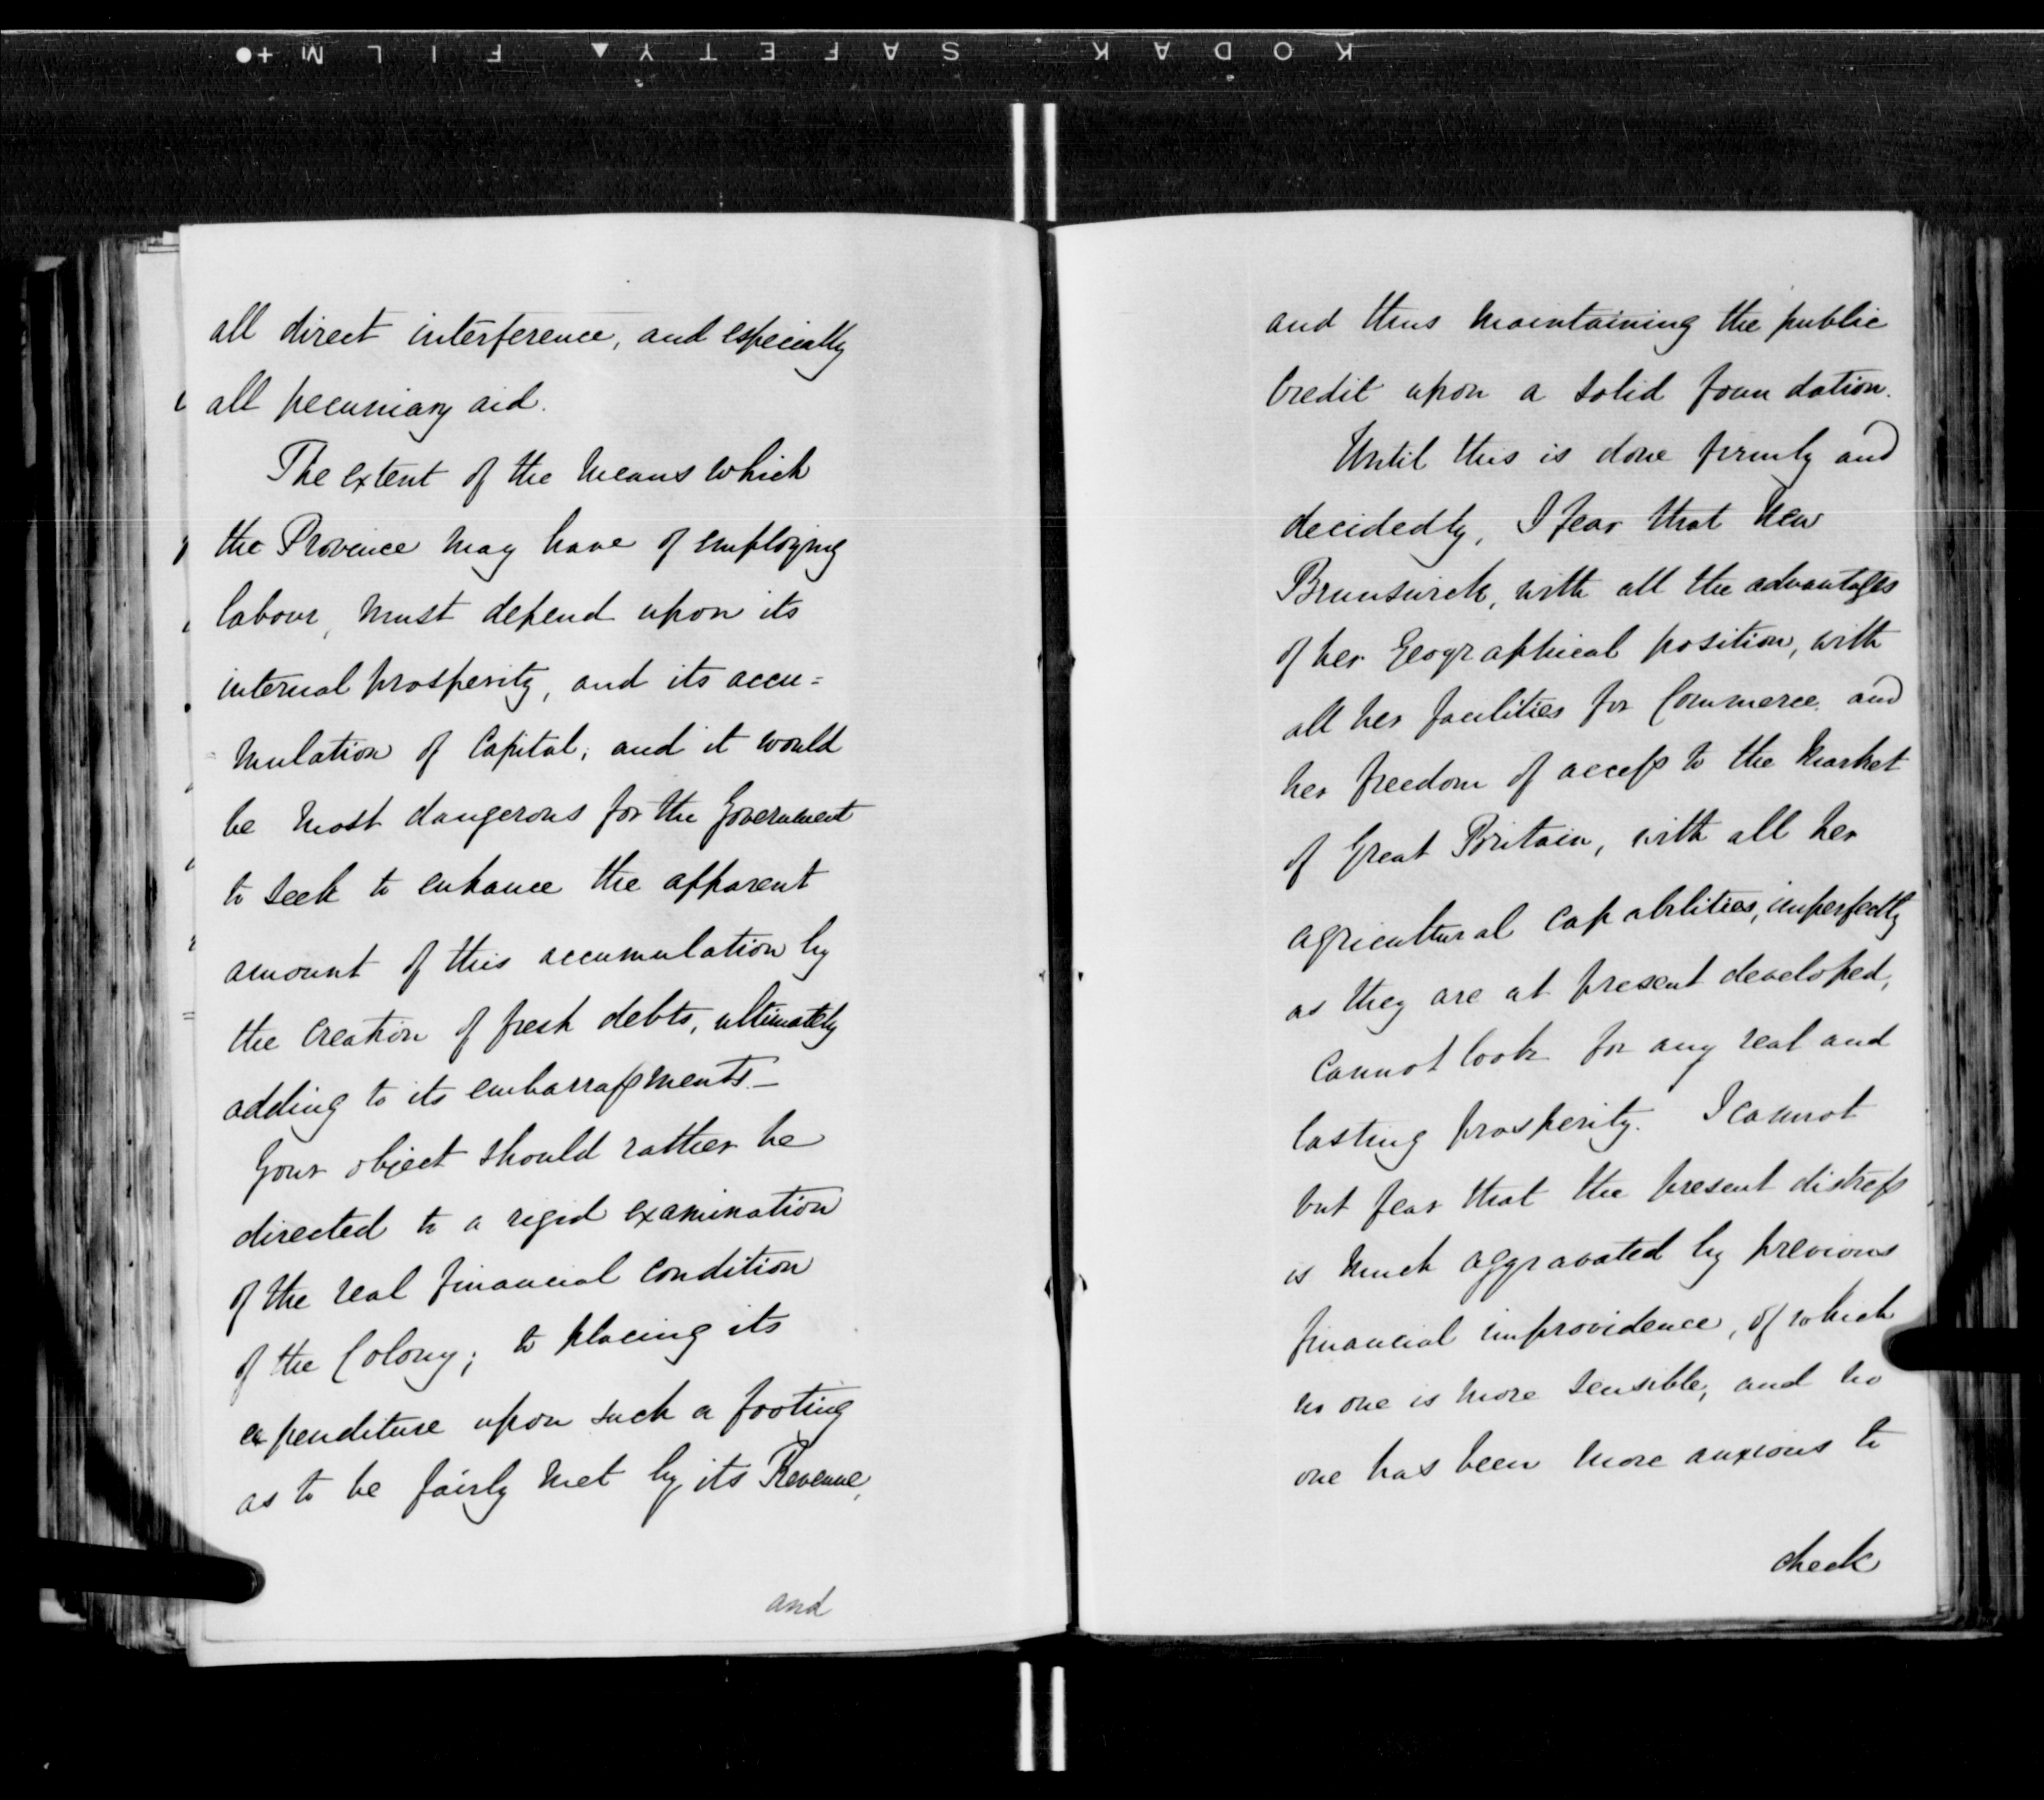 KODAK SAFETY FILM
all direct interference, and especially
all pecuniary aid.
The extent of the means which
the Province may have of employing
labour, must depend upon its
internal prosperity, and its accu=
mulation of Capital; and it would
be most dangerous for the Government
to seek to enhance the apparent
amount of this accumulation by
the creation of fresh debts, ultimately
adding to its embarrassments.—
Your object should rather be
directed to a rigid examination
of the real financial condition
of the Colony; to placing its
expenditure upon such a footing
as to be fairly met by its Revenue,
and
and thus maintaining the public
Credit upon a solid foundation.
Until this is done firmly and
decidedly, I fear that New
Brunswick, with all the advantages
of her Geographical position, with
all her facilities for Commerce, and
her freedom of access to the market
of Great Britain, with all her
agricultural capabilities, imperfectly
as they are at present developed,
Cannot look for any real and
lasting prosperity. I cannot
but fear that the present distress
is much aggravated by previous
financial improvidence, of which
no one is more sensible, and no
one has been more anxious to
check